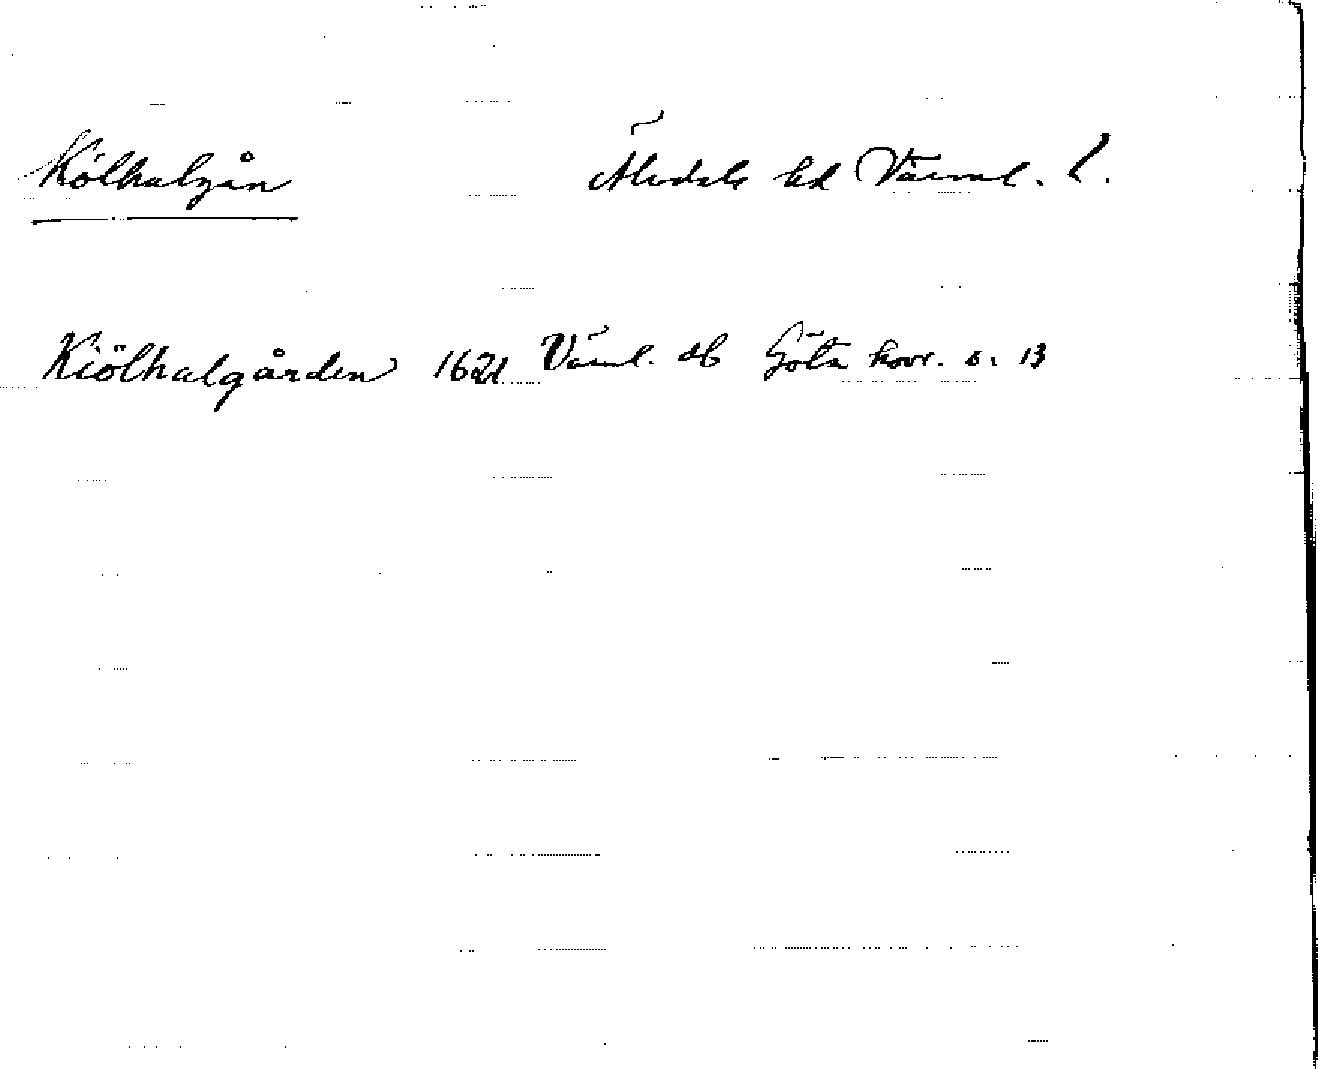 Kölhalgån Älvdals hd Värml. l.
Kiölhalgården 1621 Värml. db Göta hovr. s. 13